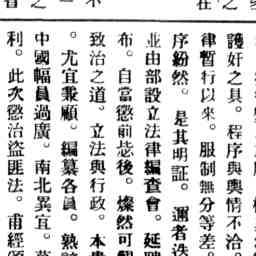 護奸之具。程序與輿情不洽。
律暫行以來。服制無分等差。
序紛然。是其明証。邇者迭
並由部設立法律編查會。延聘
布。自當懲前毖後。燦然可
致治之道。立法與行政。本
。尤宜兼顧。編纂各員。熟
中國幅員過廣。南北異宜。
利。此次懲治盜匪法。甫經